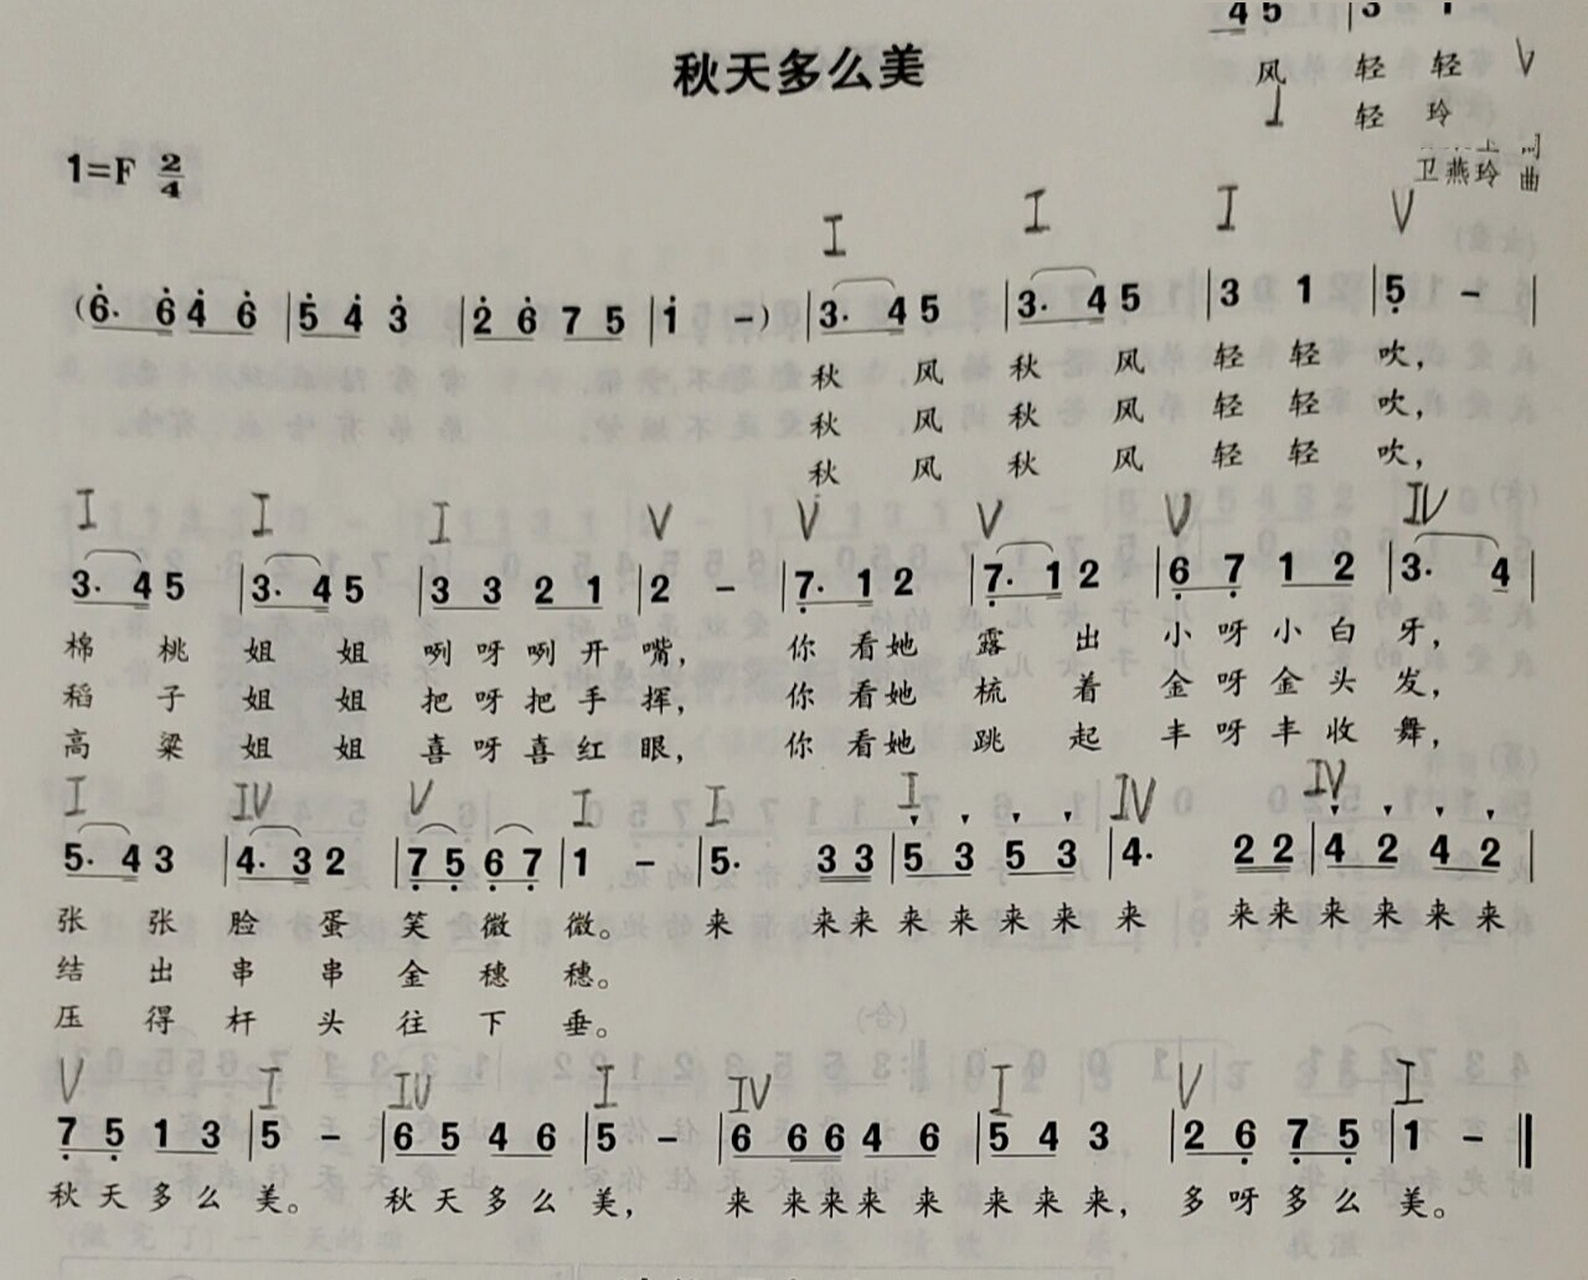 4 5 | 3 1
秋天多么美
风 轻 轻 V
I 轻 玲
1=F 2/4
词
卫燕玲 曲
I I I V
(6· 6 4 6 | 5 4 3 | 2 6 7 5 | 1 -) | 3· 4 5 | 3· 4 5 | 3 1 | 5 - |
秋 风 秋 风 轻 轻 吹,
秋 风 秋 风 轻 轻 吹,
秋 风 秋 风 轻 轻 吹,
I I I V V V V IV
3· 4 5 | 3· 4 5 | 3 3 2 1 | 2 - | 7· 1 2 | 7· 1 2 | 6 7 1 2 | 3· 4 |
棉 桃 姐 姐 咧 呀 咧 开 嘴, 你 看她 露 出 小 呀 小 白 牙,
稻 子 姐 姐 把 呀 把 手 挥, 你 看她 梳 着 金 呀 金 头 发,
高 粱 姐 姐 喜 呀 喜 红 眼, 你 看她 跳 起 丰 呀 丰 收 舞,
I IV V I I I IV IV
5· 4 3 | 4· 3 2 | 7 5 6 7 | 1 - | 5· 3 3 | 5 3 5 3 | 4· 2 2 | 4 2 4 2 |
张 张 脸 蛋 笑 微 微。 来 来来 来 来 来 来 来 来来 来 来 来 来
结 出 串 串 金 穗 穗。
压 得 杆 头 往 下 垂。
V I IV I IV I V I
7 5 1 3 | 5 - | 6 5 4 6 | 5 - | 6 6 6 4 6 | 5 4 3 | 2 6 7 5 | 1 - ‖
秋 天 多 么 美。 秋 天 多 么 美, 来 来来来 来 来 来 来, 多 呀 多 么 美。